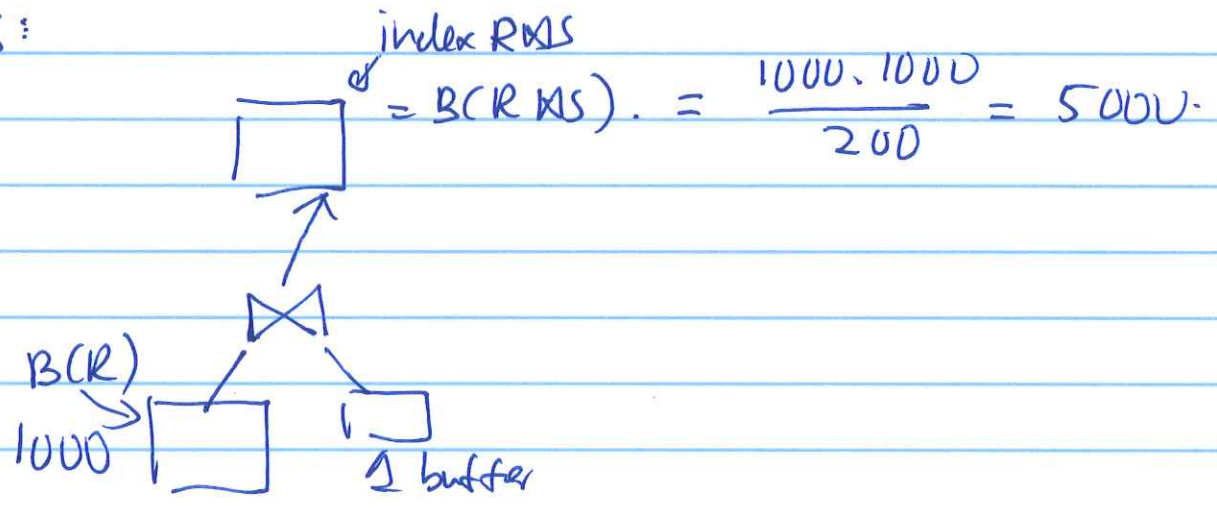 index R⋈S
= B(R ⋈S). = 1000.1000 / 200 = 5000.
B(R)
1000
1 buffer